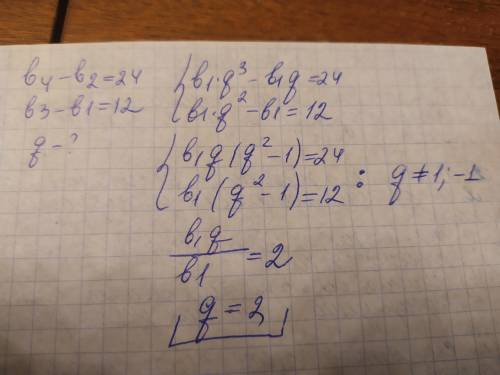 b4 - b2 = 24
b3 - b1 = 12
q - ?
b1·q³ - b1q = 24
b1·q² - b1 = 12
b1q(q² - 1) = 24
b1(q² - 1) = 12 : q ≠ 1; -1
b1q / b1 = 2
q = 2